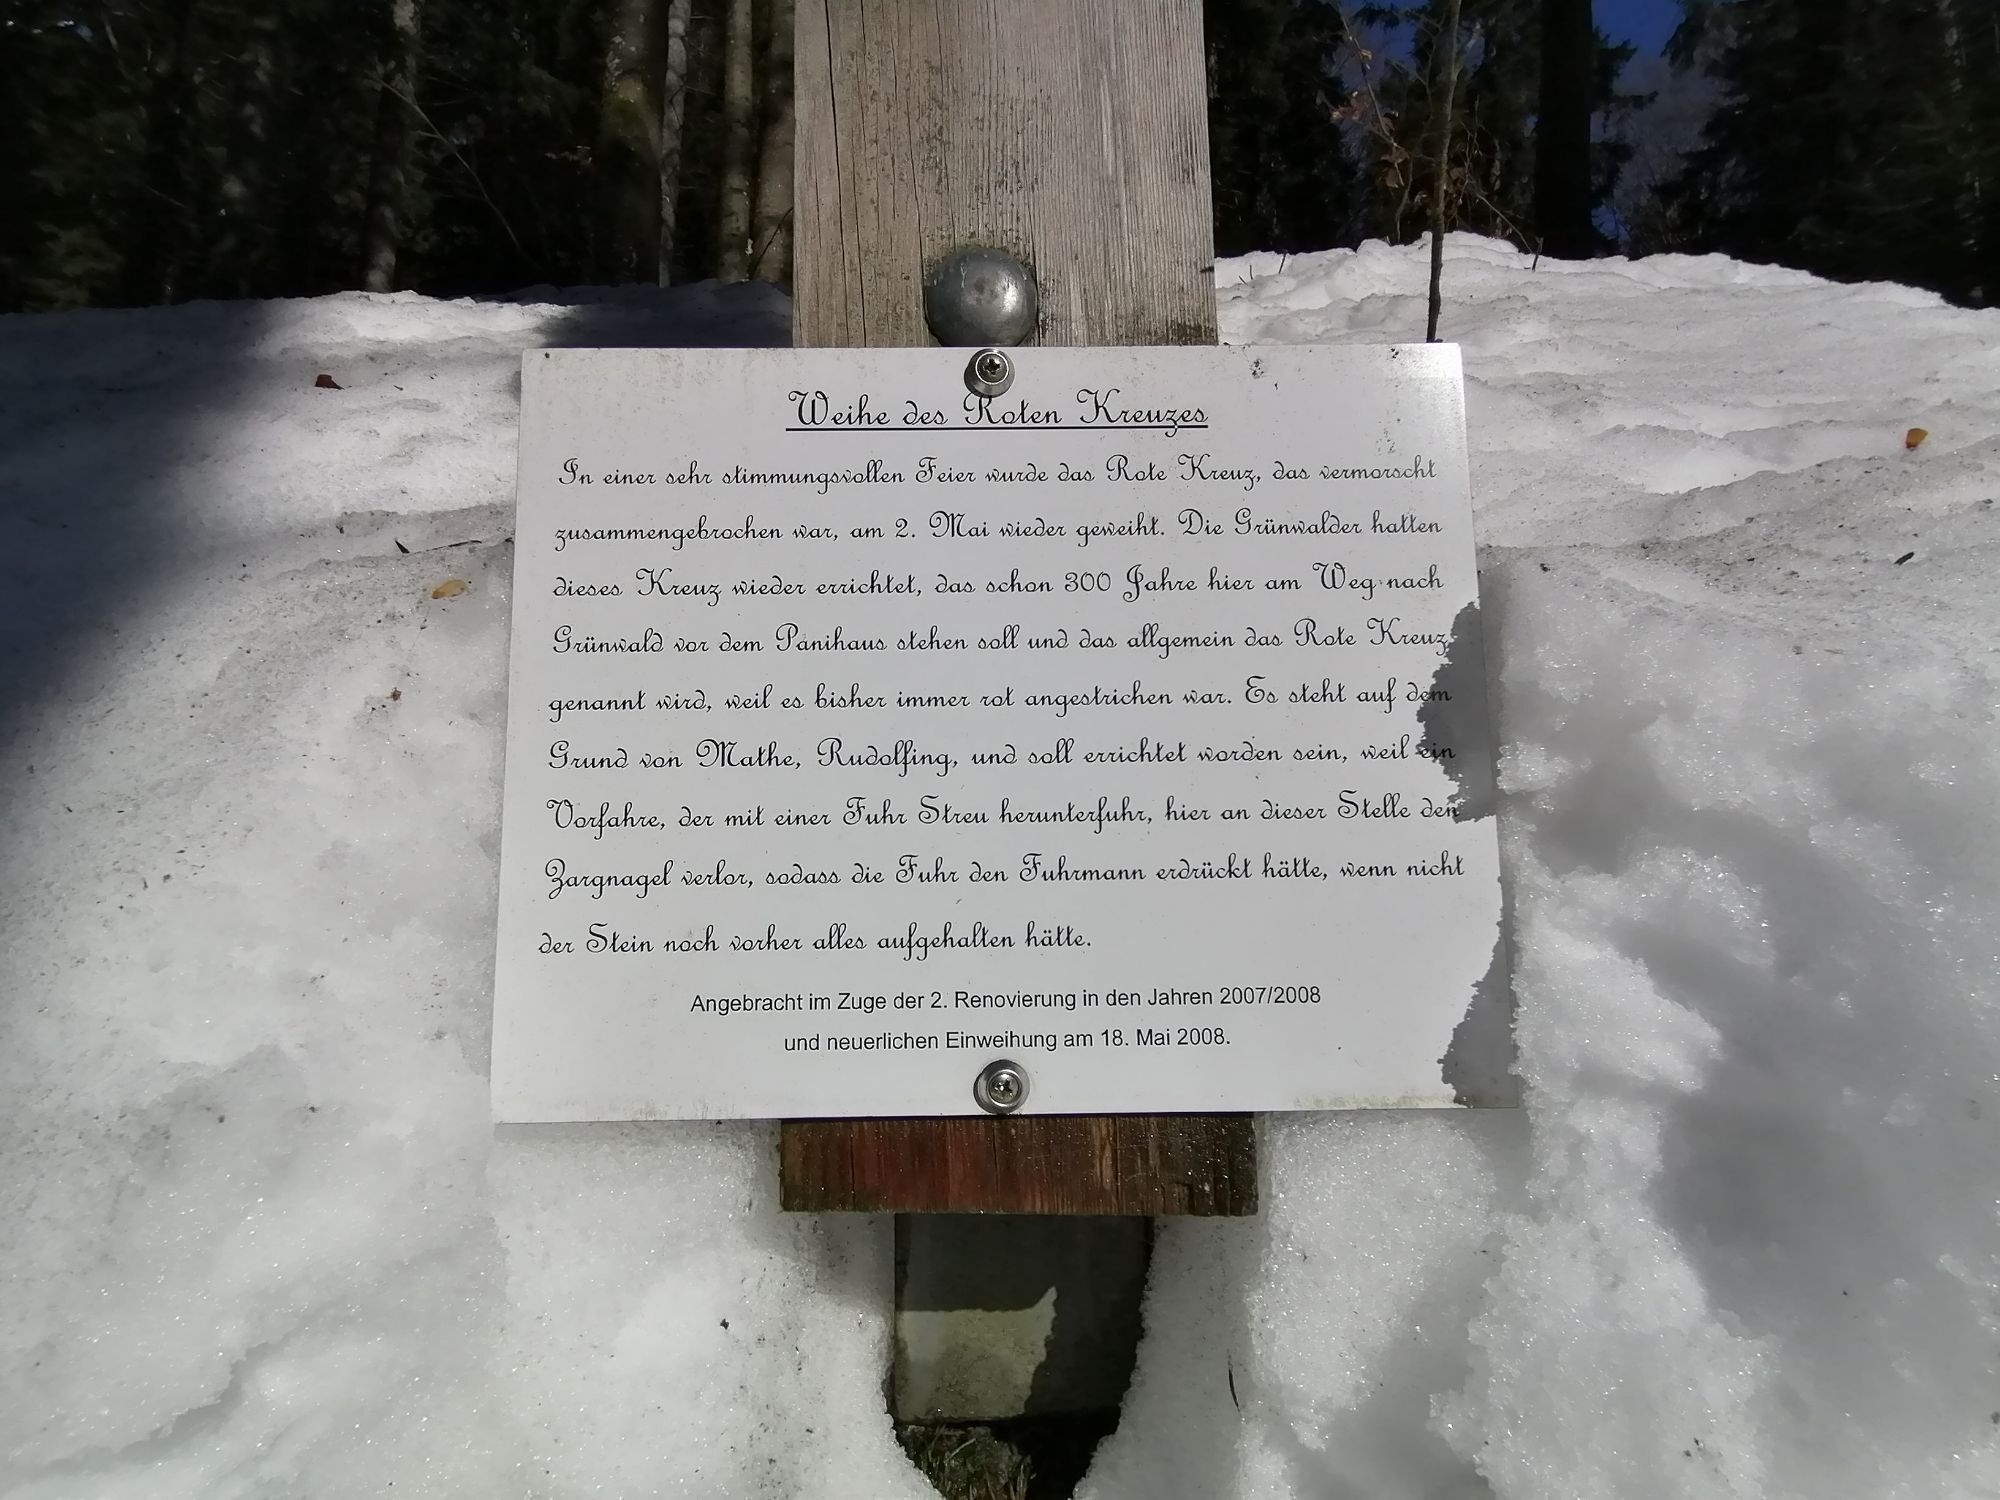 Weihe des Roten Kreuzes
In einer sehr stimmungsvollen Feier wurde das Rote Kreuz, das vermorscht
zusammengebrochen war, am 2. Mai wieder geweiht. Die Grünwalder hatten
dieses Kreuz wieder errichtet, das schon 300 Jahre hier am Weg nach
Grünwald vor dem Panihaus stehen soll und das allgemein das Rote Kreuz
genannt wird, weil es bisher immer rot angestrichen war. Es steht auf dem
Grund von Mathe, Rudolfing, und soll errichtet worden sein, weil ein
Vorfahre, der mit einer Fuhr Streu herunterfuhr, hier an dieser Stelle den
Zargnagel verlor, sodass die Fuhr den Fuhrmann erdrückt hätte, wenn nicht
der Stein noch vorher alles aufgehalten hätte.
Angebracht im Zuge der 2. Renovierung in den Jahren 2007/2008
und neuerlichen Einweihung am 18. Mai 2008.